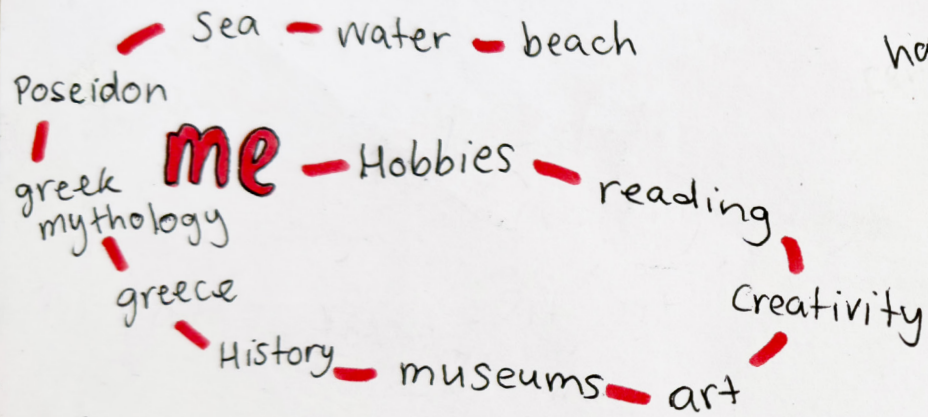 Sea water beach
Poseidon
me Hobbies
reading
greek
mythology
greece
Creativity
History museums art